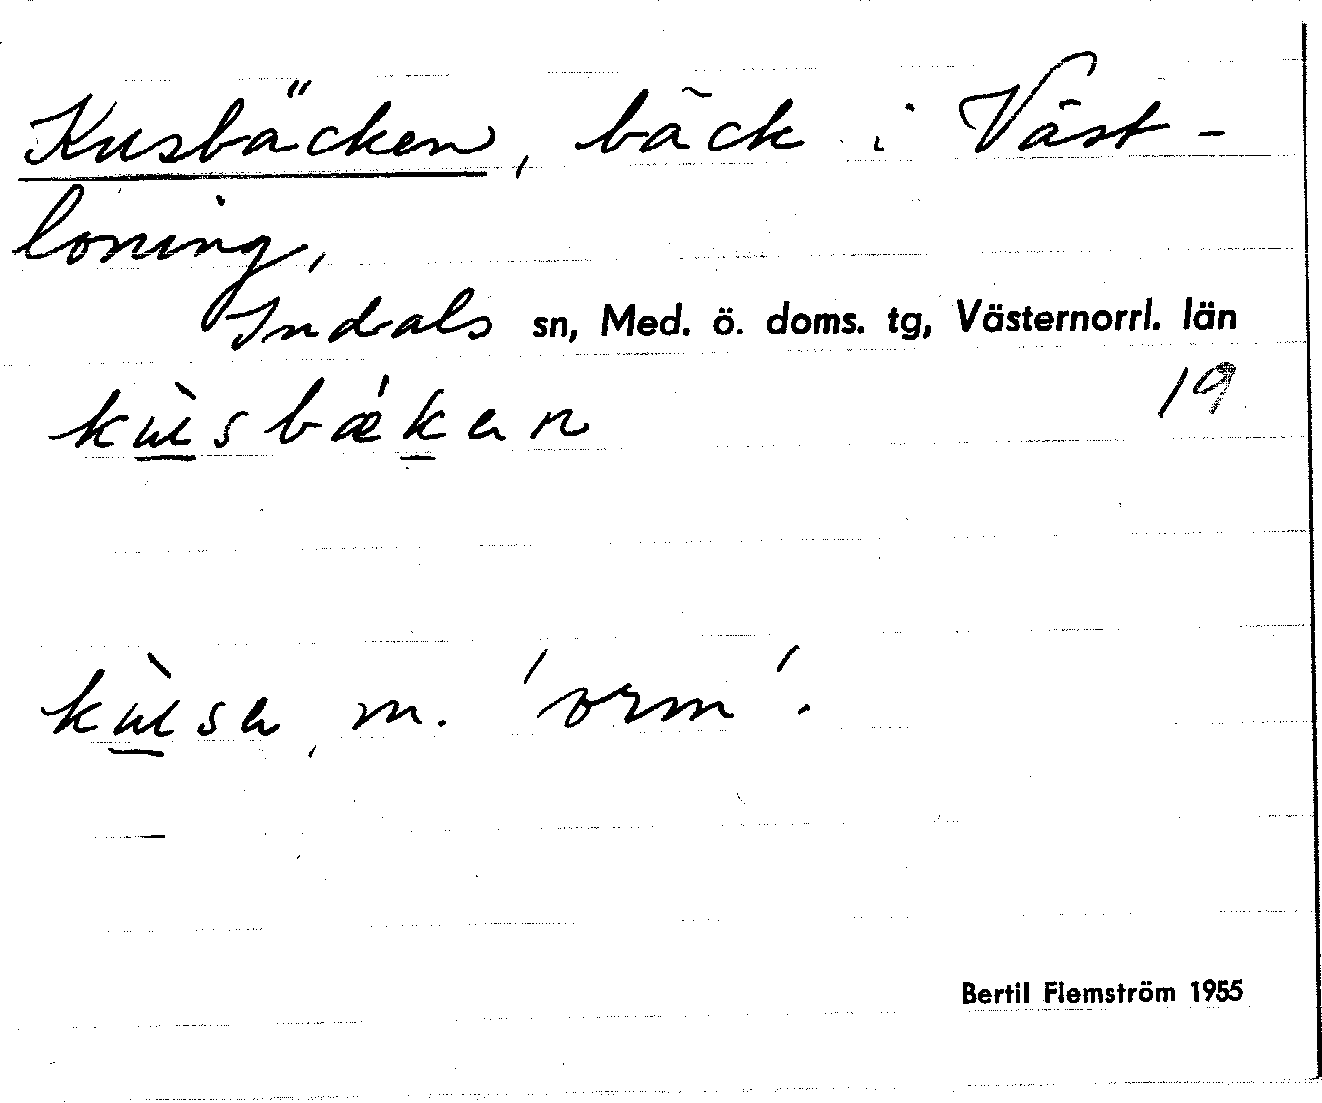 Kusbäcken, bäck i Väst-
loning,
Indals sn, Med. ö. doms. tg, Västernorrl. län
19
kùsbǽkan
kùsa, m. 'orm'.
Bertil Flemström 1955